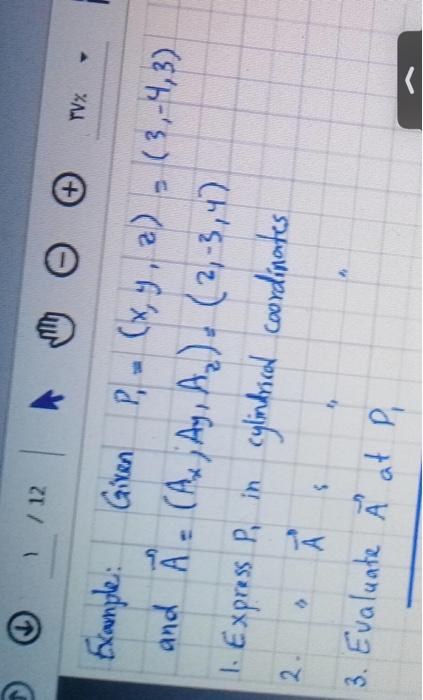 1 / 12
Example: Given P₁ = (x, y, z) = (3, -4, 3)
and A⃗ = (Aₓ, Ay, A_z) = (2, -3, 4)
1. Express P₁ in cylindrical coordinates
2. " A⃗ " "
3. Evaluate A⃗ at P₁